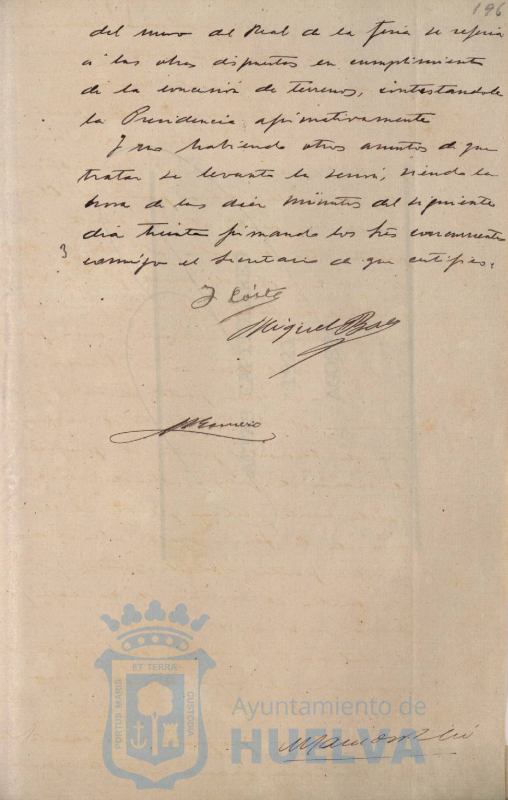 196
del muro del Real de la feria se referia
á las obras dispuestas en cumplimiento
de la concesión de terrenos, contestandole
la Presidencia afirmativamente
Y no habiendo otros asuntos de que
tratar se levanto la sesión, siendo la
hora de las diez minutos del siguiente
dia treinta firmando los tres concurrentes
3
conmigo el Secretario de que certifico.
Miguel
ET TERRA
PORTUS MARIS
CUSTODIA
Ayuntamiento de
HUELVA